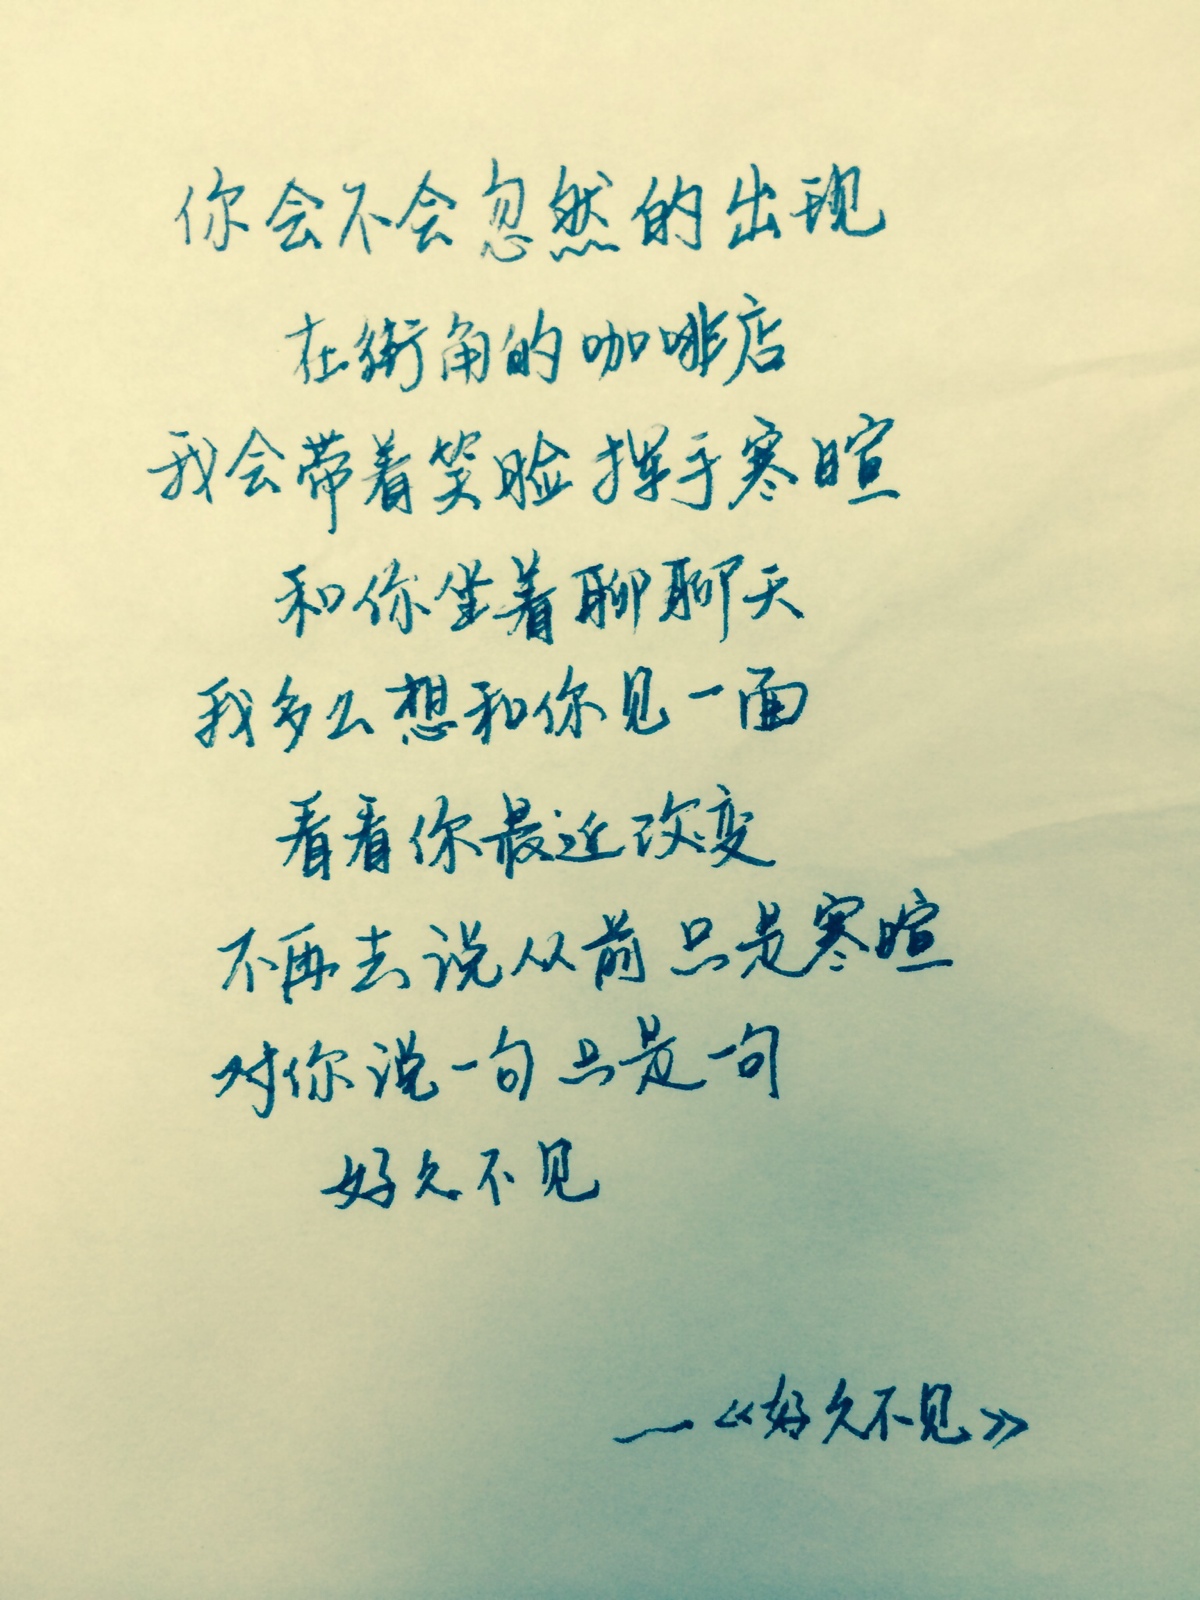 你会不会忽然的出现
在街角的咖啡店
我会带着笑脸 挥手寒暄
和你坐着聊聊天
我多么想和你见一面
看看你最近改变
不再去说从前 只是寒暄
对你说一句 只是一句
好久不见
—《好久不见》